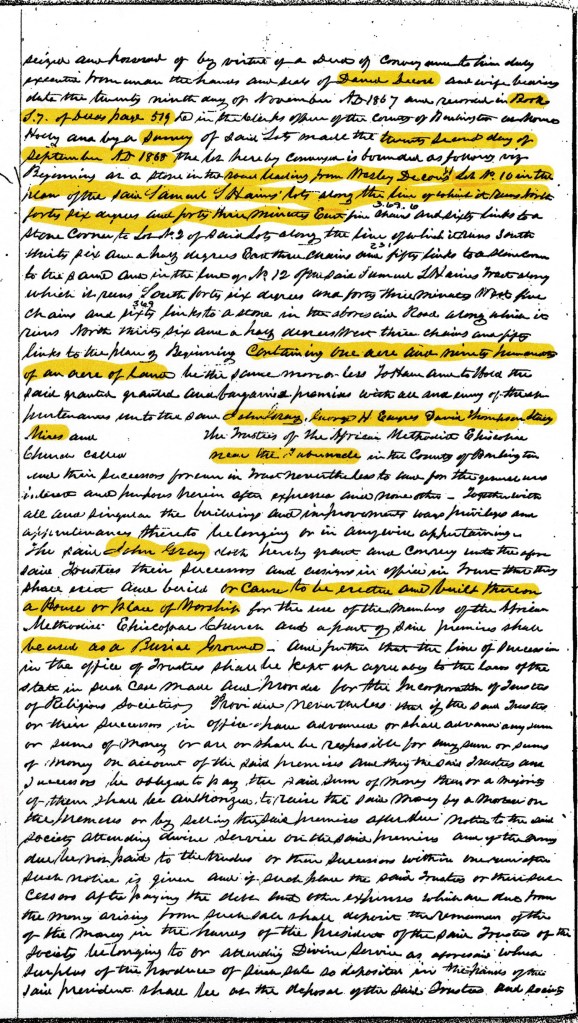 seized and possessed of by virtue of a Deed of Conveyance to him duly
executed from under the hands and seals of David Decou and wife bearing
date the twenty ninth day of November AD 1867 and recorded in Book
S.7. of Deeds page 519 &c in the Clerks office of the County of Burlington at Mount
Holly and by a Survey of said Lots made the twenty second day of
September AD 1868 the lot hereby conveyed is bounded as follows viz
Beginning at a stone in the road leading from Wesley Decou's Lot No. 10 in the
plan of the said Samuel S Hains' lots along the line of which it runs North
forty six degrees and forty three minutes East five chains and sixty links to a
3.69.6
stone Corner to Lot No. 2 of said lots along the line of which it runs South
thirty six and a half degrees East three chains and fifty links to a stone corner
231
to the same and in the line of No 12 of the said Samuel S Haines Tract along
which it runs South forty six degrees and forty three minutes West five
chains and sixty links to a stone in the aforesaid Road along which it
369
runs North thirty six and a half degrees West three chains and fifty
links to the place of Beginning Containing one acre and ninety hundredths
of an acre of Land be the same more or less To Have and to Hold the
said granted and bargained premises with all and every of the
purtenances unto the said John Gray, George H Eayres David Thompson
Mires and the Trustees of the African Methodist Episcopal
Church called near the Tabernacle in the County of Burlington
and their successors forever in Trust nevertheless to and for the
intent and purposes herein after expressed and none other - Together with
all and singular the buildings and improvements ways privileges and
appurtenances thereto belonging or in anywise appertaining.
The said John Gray doth hereby grant and Convey unto the afore
said Trustees their successors and in office in Trust that they
shall erect and build or cause to be erected and built thereon
a House or place of Worship for the use of the Members of the African
Methodist Episcopal Church and a part of said premises shall
be used as a Burial Ground - And further that the line of succession
in the office of Trustees shall be kept up agreeably to the laws of the
state in such case made and provided for the Incorporation of Trustees
of Religious Societies Provided nevertheless that if the said Trustees
or their successors in office have advanced or shall advance any sum
or sums of money or are or shall be responsible for any sum or sums
of money on account of the said premises and they the said Trustees and
successors be obliged to pay the said sum of money they or a majority
of them shall be authorized to raise the said money by a Mortgage on
the premises or by selling the said premises after due notice to the said
society attending divine service on the said premises and if the money
due be not paid to the trustees or their successors within one year after
such notice is given and if such place the said Trustees or their suc
cessors after paying the debt and other expenses which are due from
the money arising from such sale shall deposit the remainder of the
of the money in the hands of the president of the said Trustees of the
society belonging to or attending Divine Service as aforesaid which
surplus of the produce of such sale so deposited in the hands of the
said president shall be at the disposal of the said Trustees and society